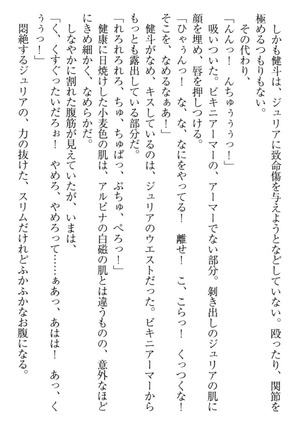 しかも健斗は、ジュリアに致命傷を与えようとなどしていない。もちろん、関節を
極めるつもりもない。
その代わり、
「んんっ！　んちゅぅぅっ！」
吸いついた。ビキニアーマーの、アーマーでない部分。剝き出しのジュリアの肌に
顔を埋め、唇を押しつける。
「ひゃぅんっ！　な、な、なにをやってる！　離せ！　こ、こらっ！　くっつくな！
そこを、なめるなぁあ！」
健斗がなめ、キスしているのは、ジュリアのウエストだった。ビキニアーマーから
もっとも露出している部分だ。
「れろれろれろ、ちゅ、ちゅぱっ、ぷちゅ、ぺろっ！」
健康に日焼けした小麦色の肌は、アルビナの白磁の肌とは違うものの、意外なほど
きめ細かく、なめらかだ。
しなやかに割れた腹筋が見えていたが、いまは、
「く、くすぐったいだろぉ！　やめろ、やめろって……ぁあっ、あはは！　あっ、く
ぅうっ！」
悶絶するジュリアの、力の抜けた、スリムだけれどふかふかなお腹になる。